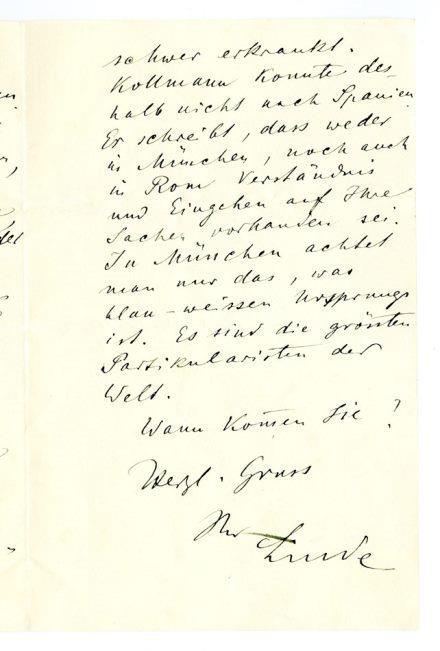 schwer erkrankt.
Kollmann konnte des-
halb nicht nach Spanien
Er schreibt, dass weder
in München, noch auch
in Rom Verständnis
und Eingehen auf Ihre
Sachen vorhanden sei.
In München achtet
man nur das, was
blau-weissen Ursprungs
ist. Es sind die grössten
Partikularisten der
Welt.
Wann kom̅en Sie?
Herzl. Gruss
Ihr Linde